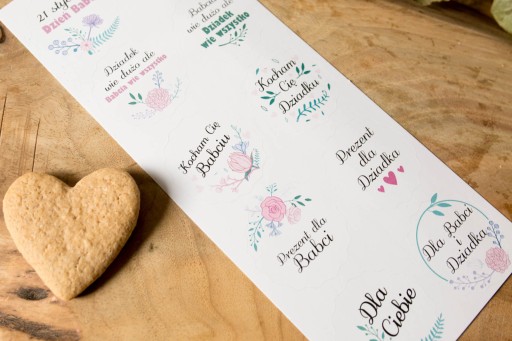 21 stycznia
Dzień Babci
Babcia
wie dużo ale
Dziadek
wie wszystko
Dziadek
wie dużo ale
Babcia wie wszystko
Kocham
Cię
Dziadku
Kocham Cię
Babciu
Prezent
dla
Dziadka
Prezent dla
Babci
Dla Babci
i
Dziadka
Dla
Ciebie